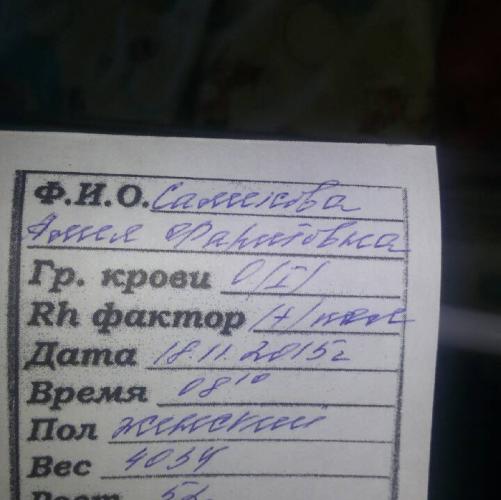 Ф.И.О. Салихова
Амея Фаритовна
Гр. крови O(I)
Rh фактор (+) пол
Дата 18.11.2015г
Время 08¹⁰
Пол женский
Вес 4034
Рост 52